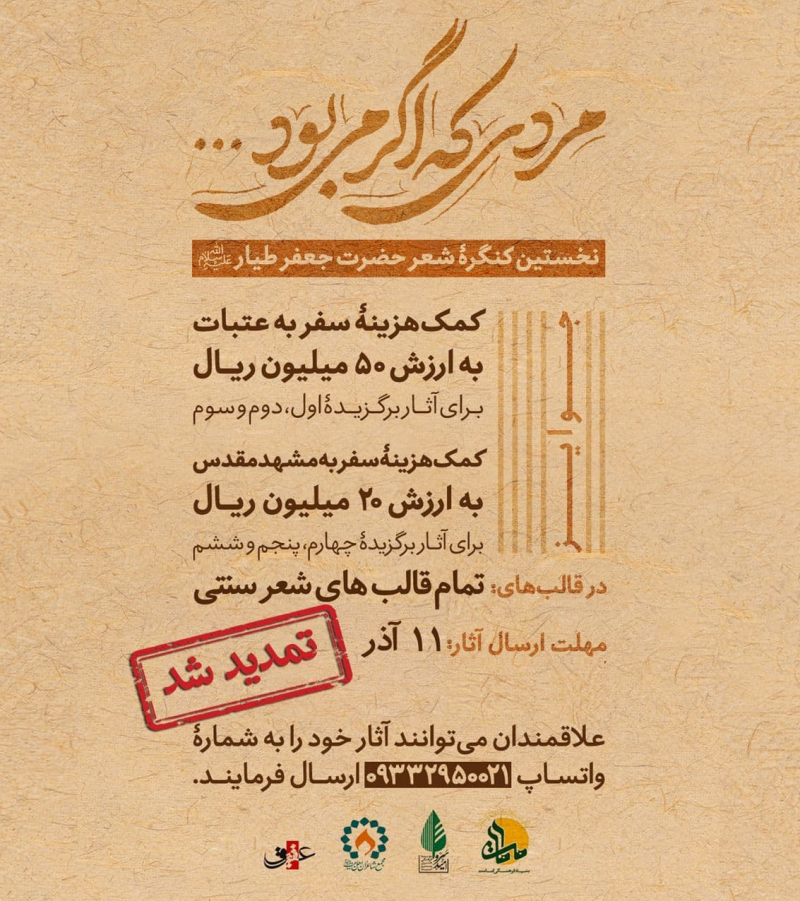 مردی که اگر می‌بود ...
نخستین کنگرهٔ شعر حضرت جعفر طیار
جوایز
کمک‌هزینهٔ سفر به عتبات
به ارزش ۵۰ میلیون ریال
برای آثار برگزیدهٔ اول، دوم و سوم
کمک‌هزینهٔ سفر به مشهد مقدس
به ارزش ۲۰ میلیون ریال
برای آثار برگزیدهٔ چهارم، پنجم و ششم
در قالب‌های: تمام قالب های شعر سنتی
مهلت ارسال آثار: ۱۱ آذر
تمدید شد
علاقمندان می‌توانند آثار خود را به شمارهٔ
واتساپ ۰۹۳۳۲۹۵۰۰۲۱ ارسال فرمایند.